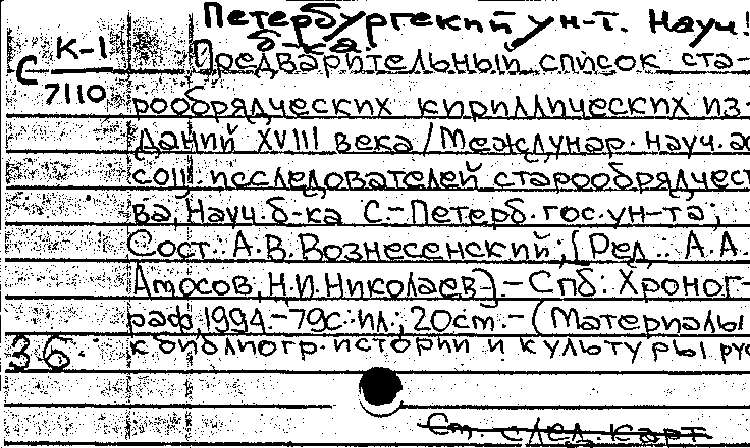 Петербургский ун-т. Науч.
б-ка.
С К-1
7110
Предварительный список ста-
рообрядческих кириллических из-
даний XVIII века / Междунар. науч. ас
соц. исследователей старообрядчест
ва, Науч. б-ка С.-Петерб. гос. ун-та;
Сост.: А.В. Вознесенский; [Ред.: А.А.
Амосов, Н.И. Николаев]. - Спб: Хроног-
раф, 1994. - 79с.: ил.; 20cm. - (Материалы
36. к библиогр. истории и культуры рус
Ст. след. карт